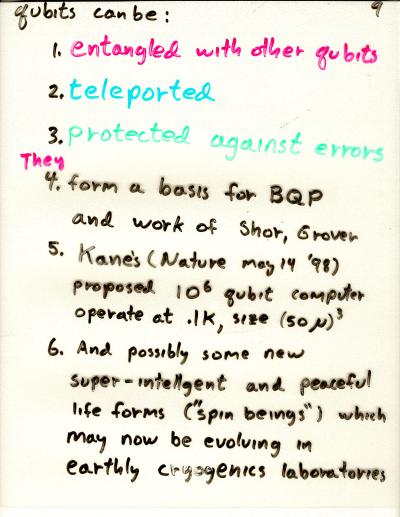 qubits can be:
9
1. entangled with other qubits
2. teleported
3. protected against errors
They
4. form a basis for BQP
and work of Shor, Grover
5. Kane's (Nature may 14 '98)
proposed 10⁶ qubit computer
operate at .1K, size (50 μ)³
6. And possibly some new
super-intellgent and peaceful
life forms ("spin beings") which
may now be evolving in
earthly cryogenics laboratories